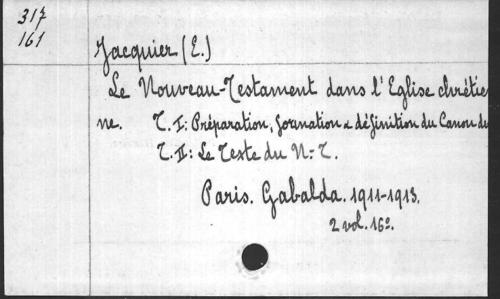 317
161
Jacquier (E.)
Le Nouveau-Testament dans l'Eglise chrétie
ne. T. I: Préparation, formation & définition du Canon du
T. II: Le Texte du N.-T.
Paris. Gabalda. 1911-1913.
2 vol. 16º.